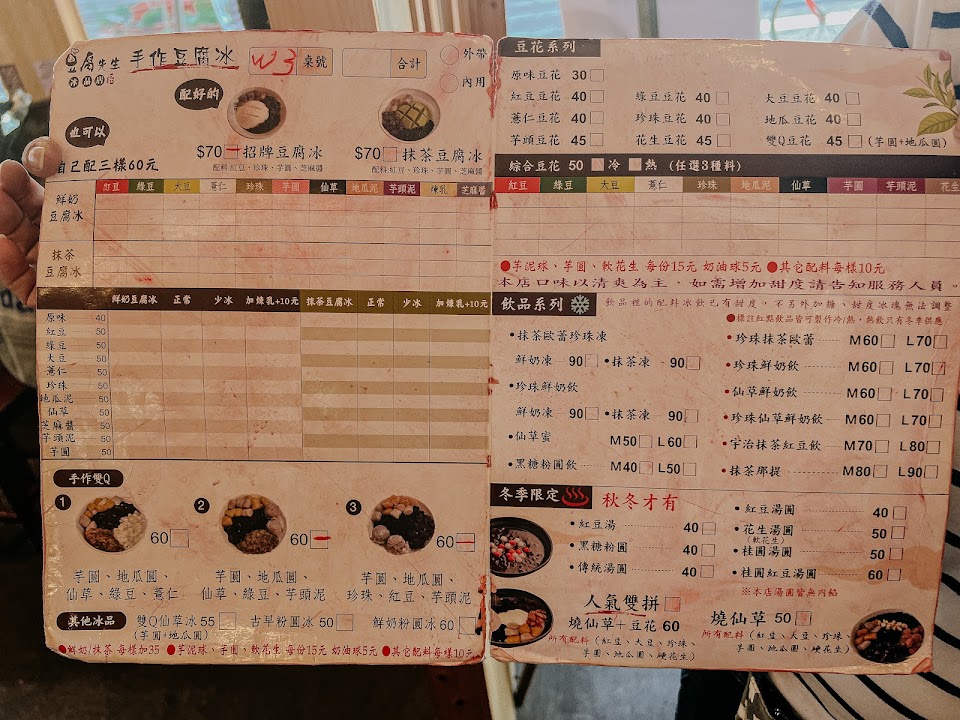 豆腐先生 手作豆腐冰
冰品甜湯
W3 桌號
合計
外帶
內用
配好的
也可以
自己配三樣60元
$70 招牌豆腐冰
配料:紅豆、珍珠、芋圓、芝麻醬
$70 抹茶豆腐冰
配料:紅豆、珍珠、芋圓、芝麻醬
紅豆 綠豆 大豆 薏仁 珍珠 芋圓 仙草 地瓜泥 芋頭泥 煉乳 芝麻醬
鮮奶
豆腐冰
抹茶
豆腐冰
鮮奶豆腐冰 正常 少冰 加煉乳+10元 抹茶豆腐冰 正常 少冰 加煉乳+10元
原味 40
紅豆 50
綠豆 50
大豆 50
薏仁 50
珍珠 50
地瓜泥 50
仙草 50
芝麻醬 50
芋頭泥 50
芋圓 50
手作雙Q
1 60
芋圓、地瓜圓、
仙草、綠豆、薏仁
2 60
芋圓、地瓜圓、
仙草、綠豆、芋頭泥
3 60
芋圓、地瓜圓、
珍珠、紅豆、芋頭泥
其他冰品 雙Q仙草冰 55 古早粉圓冰 50 鮮奶粉圓冰 60
(芋圓+地瓜圓)
●鮮奶/抹茶 每樣加35 ●芋泥球、芋圓、軟花生 每份15元 奶油球5元 ●其它配料每樣10元
豆花系列
原味豆花 30
紅豆豆花 40 綠豆豆花 40 大豆豆花 40
薏仁豆花 40 珍珠豆花 40 地瓜豆花 40
芋頭豆花 45 花生豆花 45 雙Q豆花 45 (芋圓+地瓜圓)
綜合豆花 50 冷 熱 (任選3種料)
紅豆 綠豆 大豆 薏仁 珍珠 地瓜泥 仙草 芋圓 芋頭泥 花生
●芋泥球、芋圓、軟花生 每份15元 奶油球5元 ●其它配料每樣10元
本店口味以清爽為主，如需增加甜度請告知服務人員。
飲品系列 飲品裡的配料冰飲已有甜度，不另外加糖、甜度冰塊無法調整
●標註紅點飲品皆可製作冷/熱，熱飲只有冬季供應
•抹茶歐蕾珍珠凍
鮮奶凍 90 •抹茶凍 90
•珍珠鮮奶飲
鮮奶凍 90 •抹茶凍 90
•仙草蜜 M50 L60
•黑糖粉圓飲 M40 L50
•珍珠抹茶歐蕾 M60 L70
•珍珠鮮奶飲 M60 L70
•仙草鮮奶飲 M60 L70
•珍珠仙草鮮奶飲 M60 L70
•宇治抹茶紅豆飲 M70 L80
•抹茶那提 M80 L90
冬季限定 秋冬才有
•紅豆湯 40
•黑糖粉圓 40
•傳統湯圓 40
•紅豆湯圓 40
•花生湯圓 50
(軟花生)
•桂圓湯圓 50
•桂圓紅豆湯圓 60
※本店湯圓皆無內餡
人氣雙拼
燒仙草+豆花 60
所有配料(紅豆、大豆、珍珠、
芋圓、地瓜圓、硬花生)
燒仙草 50
所有配料(紅豆、大豆、珍珠、
芋圓、地瓜圓、硬花生)